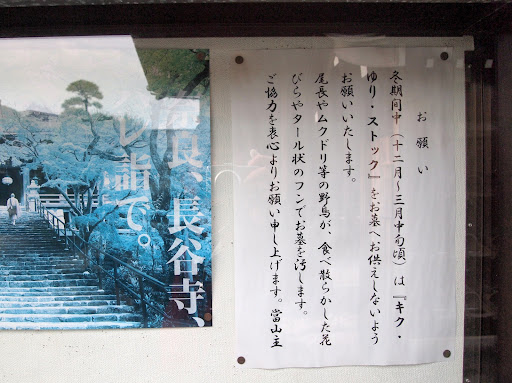 お願い
冬期間中（十二月～三月中旬頃）は『キク・
ゆり・ストック』をお墓へお供えしないよう
お願いいたします。
尾長やムクドリ等の野鳥が、食べ散らかした花
びらやタール状のフンでお墓を汚します。
ご協力を衷心よりお願い申し上げます。當山主
良、長谷寺、
レ詣で。